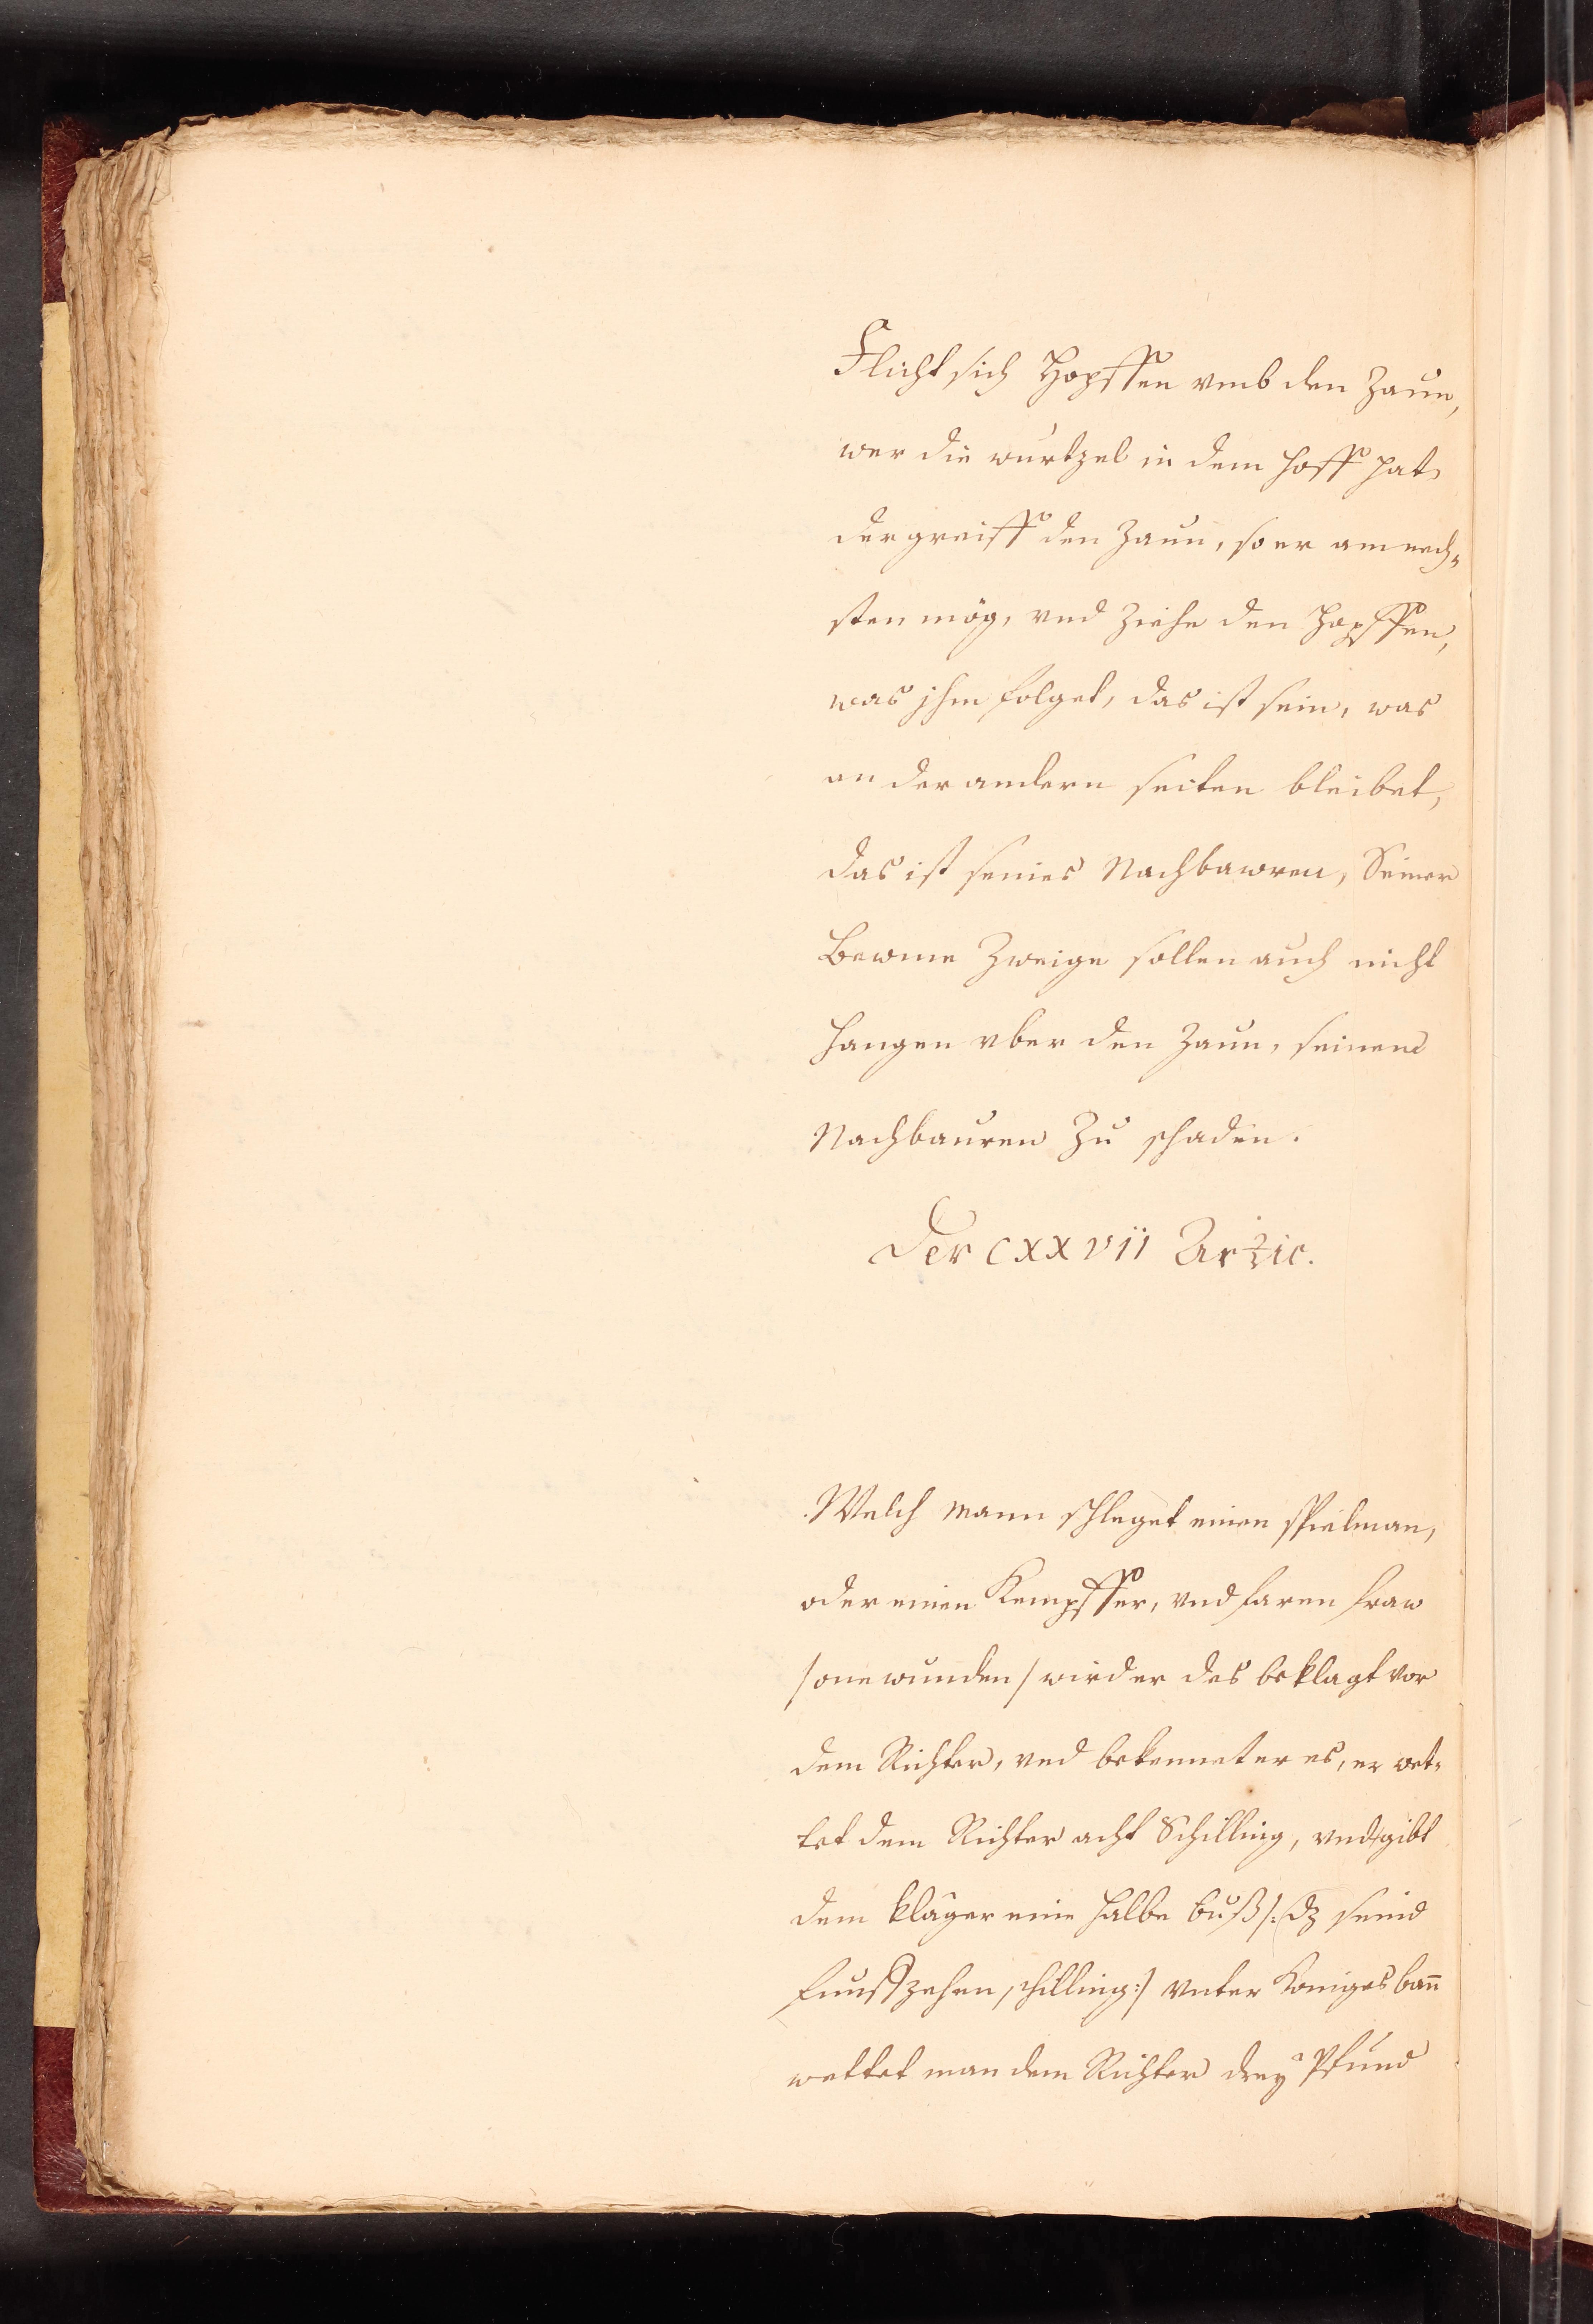 Flicht sich Hopffen vmb den Zaun,
wer die wurtzel in dem hoff hat,
der greiff den Zaun, so er am nech-
sten mög, vnd Ziehe den Hopffen,
was jhm folget, das ist sein, was
an der andern seiten bleibet,
das ist seines Nachbawren, Seiner
Bewme Zweige sollen auch nicht
hangen vber den Zaun, seinem
Nachbauren Zu schaden.
Der CXXVII Artic.
Welch Mann schleget einen spielman,
oder einen Kempffer, vnd faren fraw
/one wunden/ wird er des beklagt vor
dem Richter, vnd bekennet er es, er wet-
tet dem Richter acht Schilling, vnd gibt
dem kläger eine halbe buß /: dz seind
funffzehen schilling :/ vnter Koniges bann
wettet man dem Richter drey Pfund